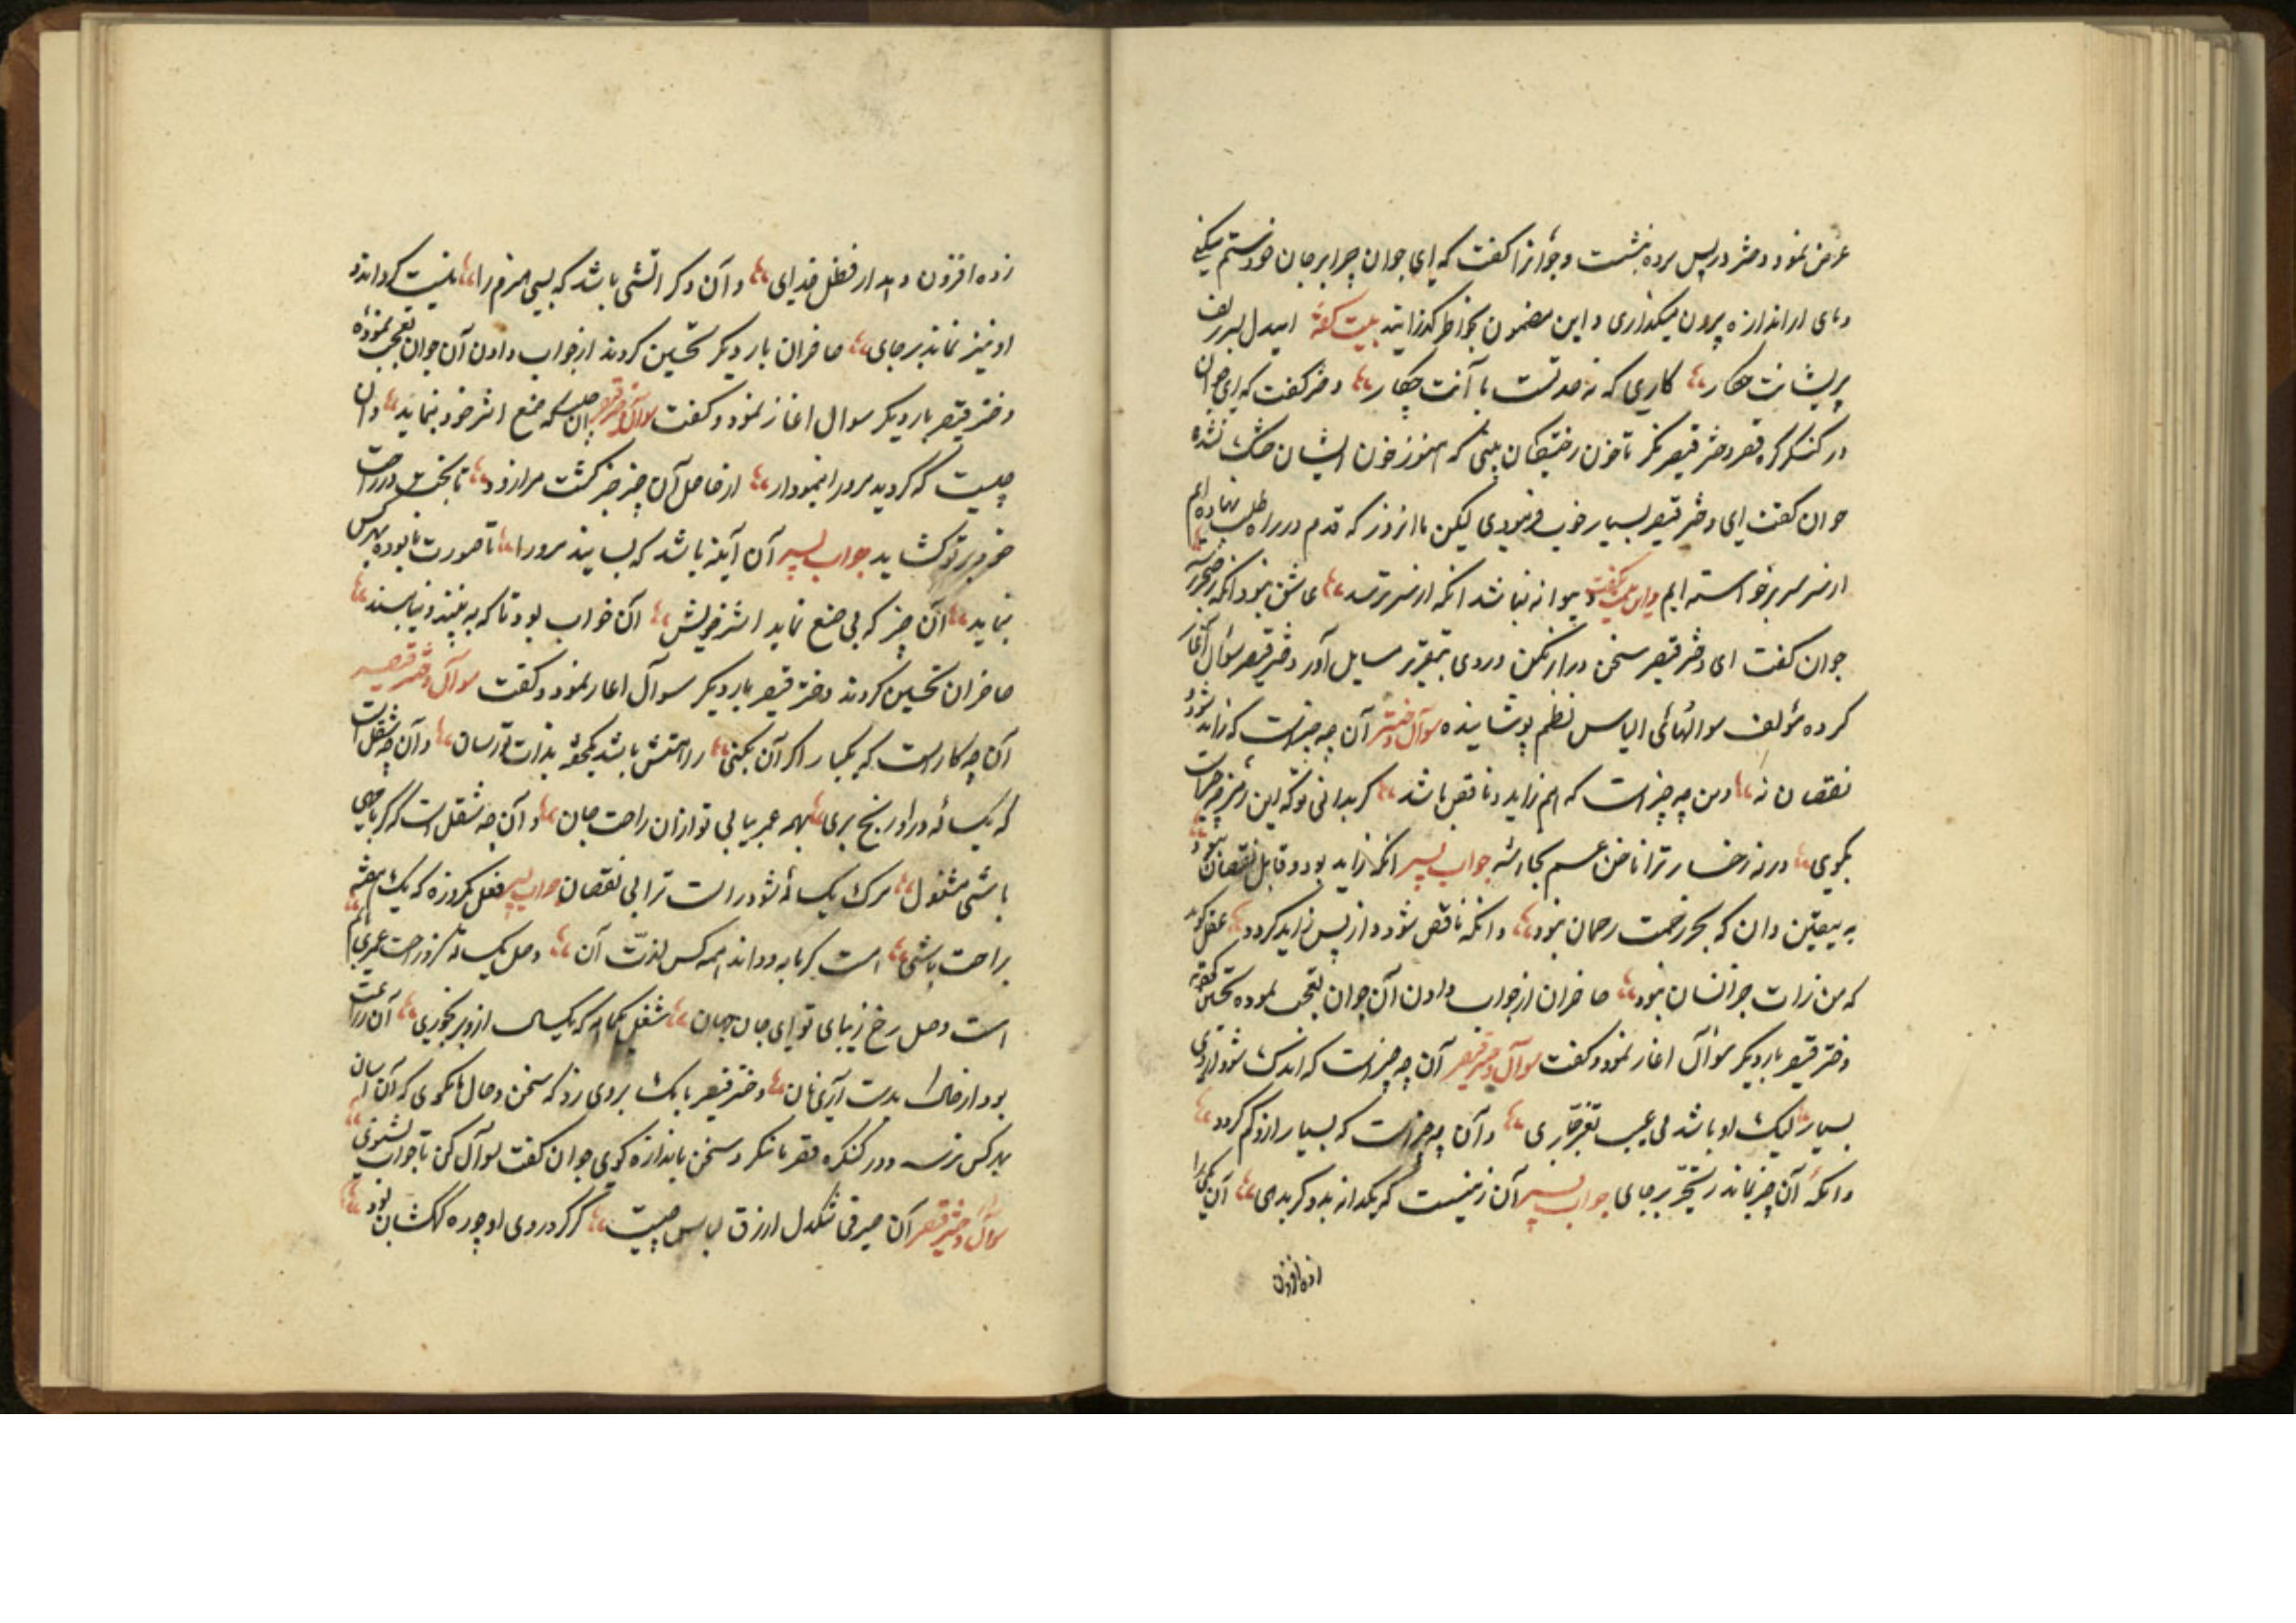 عرض نمود دختر در پس پرده بنشست و جوانرا کفت که ای جوان چرا بر جان خود ستم میکنی
و پای از اندازه بیرون میگذاری و این مضمون بخاطر گذرانید بیت کفته ای دل بسر زلف
پریشانت چکار کاری که نه حد تست با آنت چکار دختر کفت که ای جوان
در کنکره قصر دختر قیصر نکر تا خون رفیقان بینی که هنوز خون ایشان خشک نشده
جوان کفت ای دختر قیصر بسیار خوب فرمودی لیکن ما انروز که قدم در راه طلب نهاده ایم
از سر سر برخواسته ایم و این بیت بگفت دیوانه نباشد انکه از سر ترسد عاشق نبود انکه ز خنجر ترسد
جوان کفت ای دختر قیصر سخن دراز مکن و روی بتقریر مسایل آور دختر قیصر سؤال آغاز
کرده مؤلف سوالهائی الیاس نظم پوشانیده سوآل دختر آن چه چیزست که زاید شود
نقصان نه و من چه چیز است که هم زاید و ناقص باشد کر بدانی تو که این رمز چه چیزست
بکوی ورنه رخسار ترا ناخن غم بخراشد جواب پسر انکه زاید بود و قابل نقصان نبود
به یقین دان که بجز رحمت رحمان نبود وانکه ناقص شود و از پس زاید کردد عقل کوید
که من ذات جز انسان نبود حاضران از جواب دادن آن جوان تعجب نموده تحسین کفته
دختر قیصر بار دیکر سؤال اغاز نمود و کفت سوآل دختر قیصر آن چه چیزست که اندک شود ازوی
بسیار لیک او باشد بی عیب و آن چه چیزست که بسیار ازو کم کردد
وانکه آن چیز نماند بر جای جواب پسر آن زمینست کر یکدانه بدو کر بدهی آن یکی را
زده افزون
زده افزون دهد از فضل خدای و آن دکر اتشی باشد که بسی هیزم را نیست کرداند و
او نیز نماند بر جای حاضران بار دیکر تحسین کردند از جواب دادن آن جوان تعجب نموده
دختر قیصر بار دیکر سوال اغاز نمود و کفت سوآل دختر قیصر ان چیست که صنع اثر خود بنماید وان
چیست که کردید مرورا نمودار
خرد بر تو کشاید جواب پسر آن آینه باشد که بسایند مرورا تا صورت نابوده بهر کس
بنماید آن چیز که بی صنع نماید اثر خویش آن خواب بود تا که ببینند و نیابسند
حاضران تحسین کردند دختر قیصر بار دیکر سوآل اغاز نمود و کفت سوآل دختر قیصر
آن چه کارست که یکبار اکر آن بکنی راحتش باشد یکهفته بذات تو رسان و آن چه شغل است
که یکساله درو رنج بری همه عمر بیابی تو ازان راحت جان و آن چه شغل است که کر باوی
باشی مشغول مرک یکساله شود راست ترا بی نقصان جواب پسر فعل یکروزه که یک هفته
براحت باشی است کرمابه و داند همه کس لذت آن وصل یکساله کزو راحت عمری یابم
است وصل رخ زیبای تو ای جان جهان شغل یکماهه که یکسال ازو بر بخوری آن زراعت
بود از خاک بدست آری نان دختر قیصر بانک بروی زد که سخن و حال ما بکوی که آن اسان
بهر کس نرسد و در کنکره قصر ما نکر و سخن باندازه کوی جوان کفت سوآل کن تا جواب بشنوی
سوآل دختر قیصر آن صیرفی شکدل ازرق لباس چیست کز کرد روی او چو ره کهکشان بود